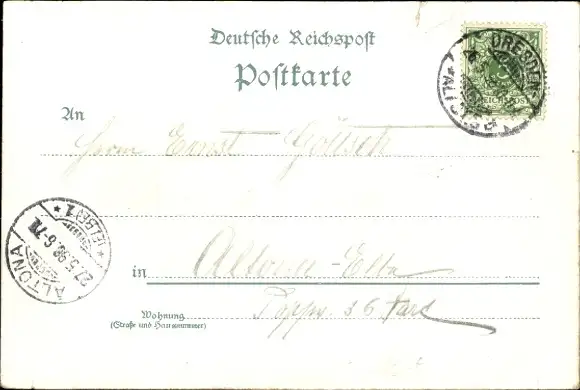 Deutsche Reichspost
Postkarte
An
Herrn Ernst Göttsch
in Altona-Elbe
Wohnung
(Straße und Hausnummer)
36
DRESDEN
ALTST.
REICHSPOST
ALTONA
27.5.98.6-7N.
*(ELBE) 1*